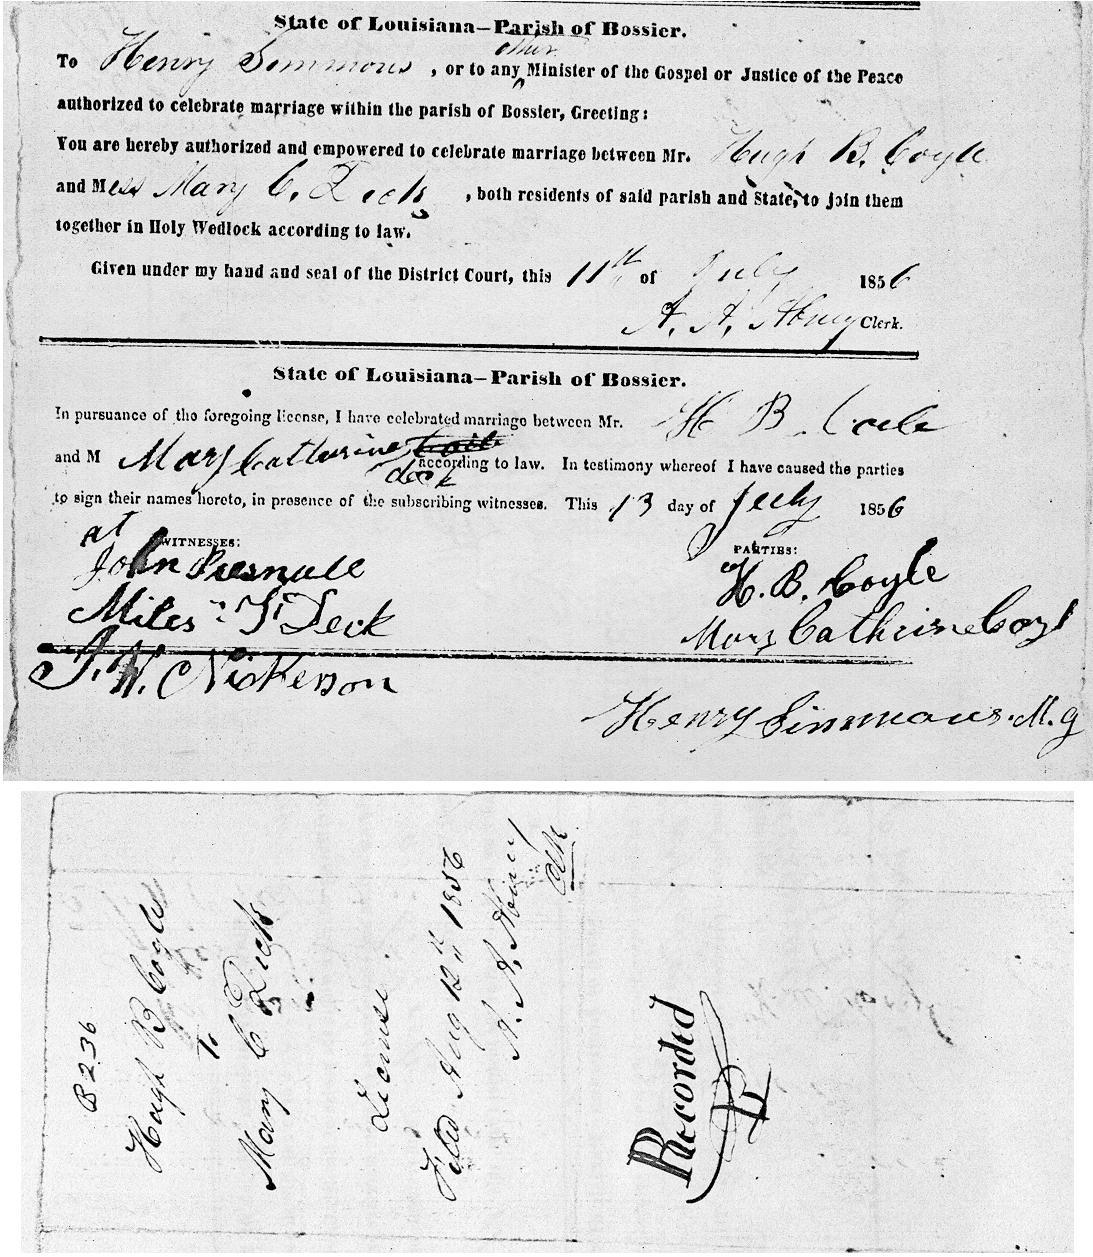 State of Louisiana—Parish of Bossier.
other
To Henry Simmons, or to any Minister of the Gospel or Justice of the Peace
authorized to celebrate marriage within the parish of Bossier, Greeting:
You are hereby authorized and empowered to celebrate marriage between Mr. Hugh B. Coyle
and Miss Mary C. Deck, both residents of said parish and State, to join them
together in Holy Wedlock according to law.
Given under my hand and seal of the District Court, this 11th of July 1856
A. A. Abney Clerk.
State of Louisiana—Parish of Bossier.
In pursuance of the foregoing license, I have celebrated marriage between Mr. H B Coile
and M Mary Catherine Coile according to law. In testimony whereof I have caused the parties
deck
to sign their names hereto, in presence of the subscribing witnesses. This 13 day of July 1856
at
WITNESSES: PARTIES:
John Presnall H. B. Coyle
Miles F Deck Mary Cathrine Coyl
J. W. Nickerson
Henry Simmons. M. G
B236
Hugh B Coyle
To
Mary C Deck
License
Filed Aug 12th 1856
A. A. Abney
Clk
Recorded